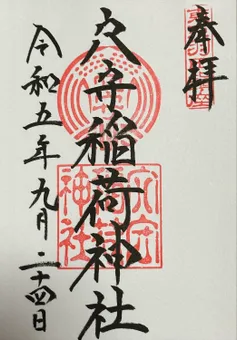 奉拝
穴守稲荷神社
穴守
神社
令和五年九月二十四日